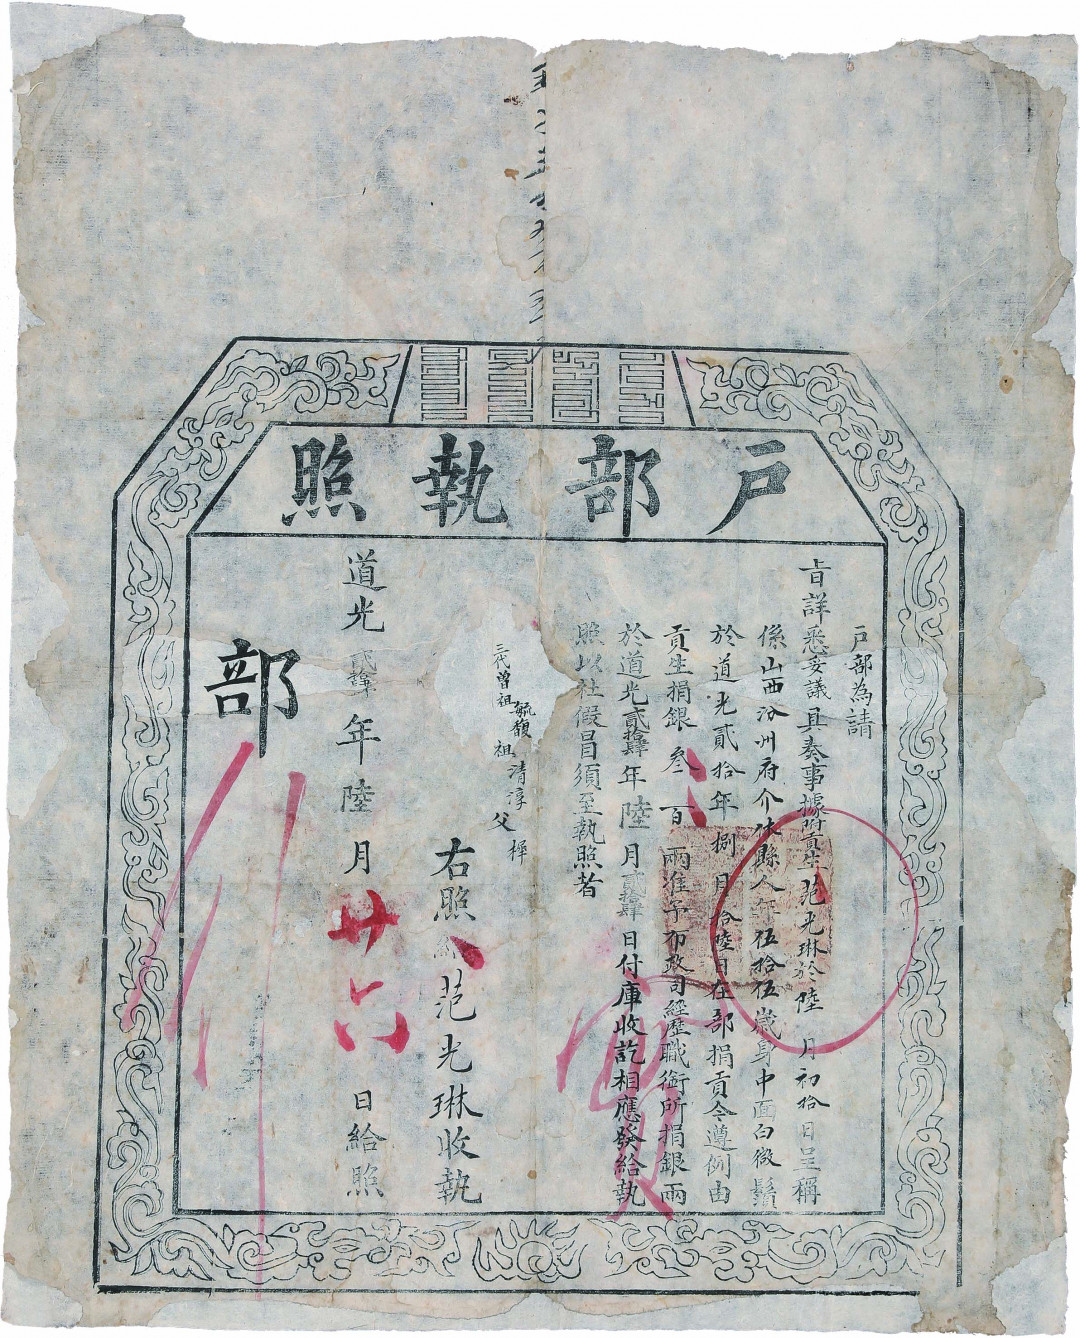 戶部執照
戶部為請
旨詳悉妥議具奏事據附貢生范光琳於陸月初拾日呈稱
係山西汾州府介休縣人年伍拾伍歲身中面白微鬚
於道光貳拾年捌月拾陸日在部捐貢今遵例由
貢生捐銀叁百兩准予布政司經歷職銜所捐銀兩
於道光貳拾肆年陸月貳拾肆日付庫收訖相應發給執
照以杜假冒須至執照者
三代曾祖毓馥祖清淳父樨
右照給范光琳收執
道光貳拾肆年陸月廿六日給照
部